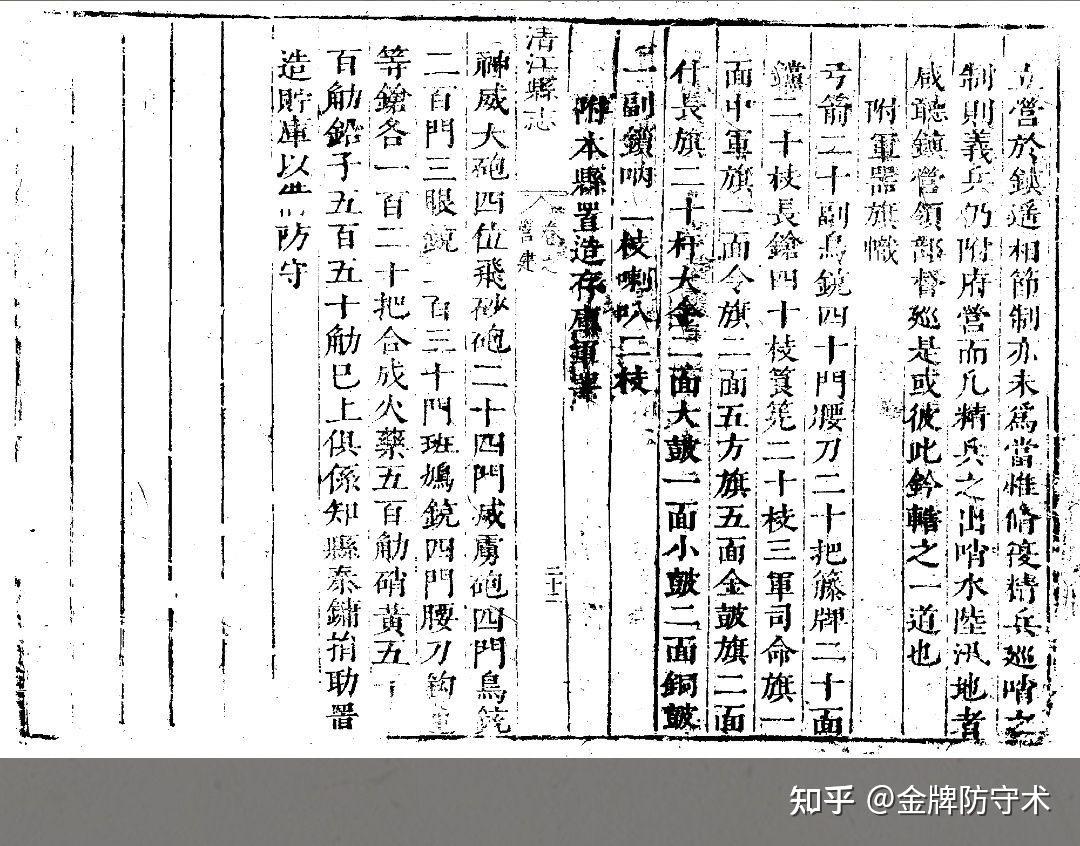 立營於鎮遥相節制亦未為當惟脩復精兵巡哨之
制則義兵仍附府營而凡精兵之出哨水陸汛地者
咸聽鎮營領部督廵是或彼此鈐轄之一道也
附軍器旗幟
弓箭二十副鳥銃四十門腰刀二十把籐牌二十面
鑞二十枝長鎗四十枝筤筅二十枝三軍司命旗一
面中軍旗一面令旗二面五方旗五面金鼓旗二面
什長旗二十杆大金二面大鼓一面小鼓二面銅鼓
一副鎖吶一枝喇叭二枝
附本縣置造存庫軍器
清江縣志
卷之
營建
三十二
神威大砲四位飛砂砲二十四門威虜砲四門鳥銃
二百門三眼銃一百三十門班鳩銃四門腰刀鈎
等鎗各一百二十把合成火藥五百觔硝黃五
百觔鉛子五百五十觔巳上俱係知縣秦鏞捐助置
造貯庫以備防守
知乎 @金牌防守术